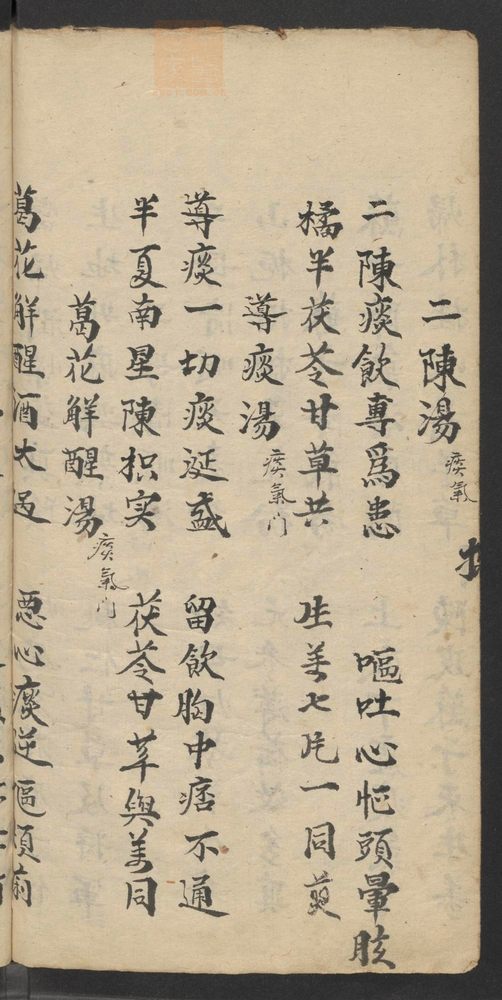 二陳湯 痰氣
二陳痰飲專爲患 嘔吐心忪頭暈眩
橘半茯苓甘草共 生姜七片一同煎
導痰湯 痰氣门
導痰一切痰涎盛 留飲胸中痞不通
半夏南星陳枳实 茯苓甘草與姜同
葛花解酲湯 痰氣门
葛花解酲酒大過 惡心痰逆嘔